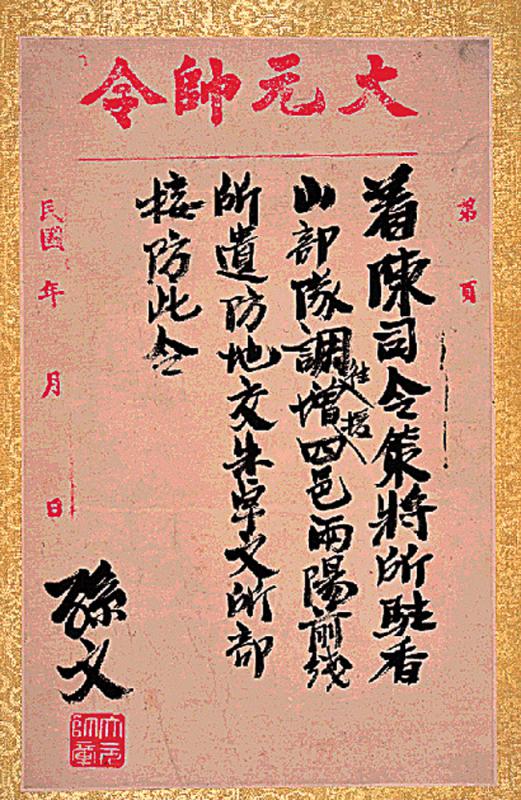 大元帥令
第 頁
着陳司令策將所駐香
山部隊調往增援四邑兩陽前线
所遺防地交朱卓文所部
接防此令
民國 年 月 日
孫文
大元帥章